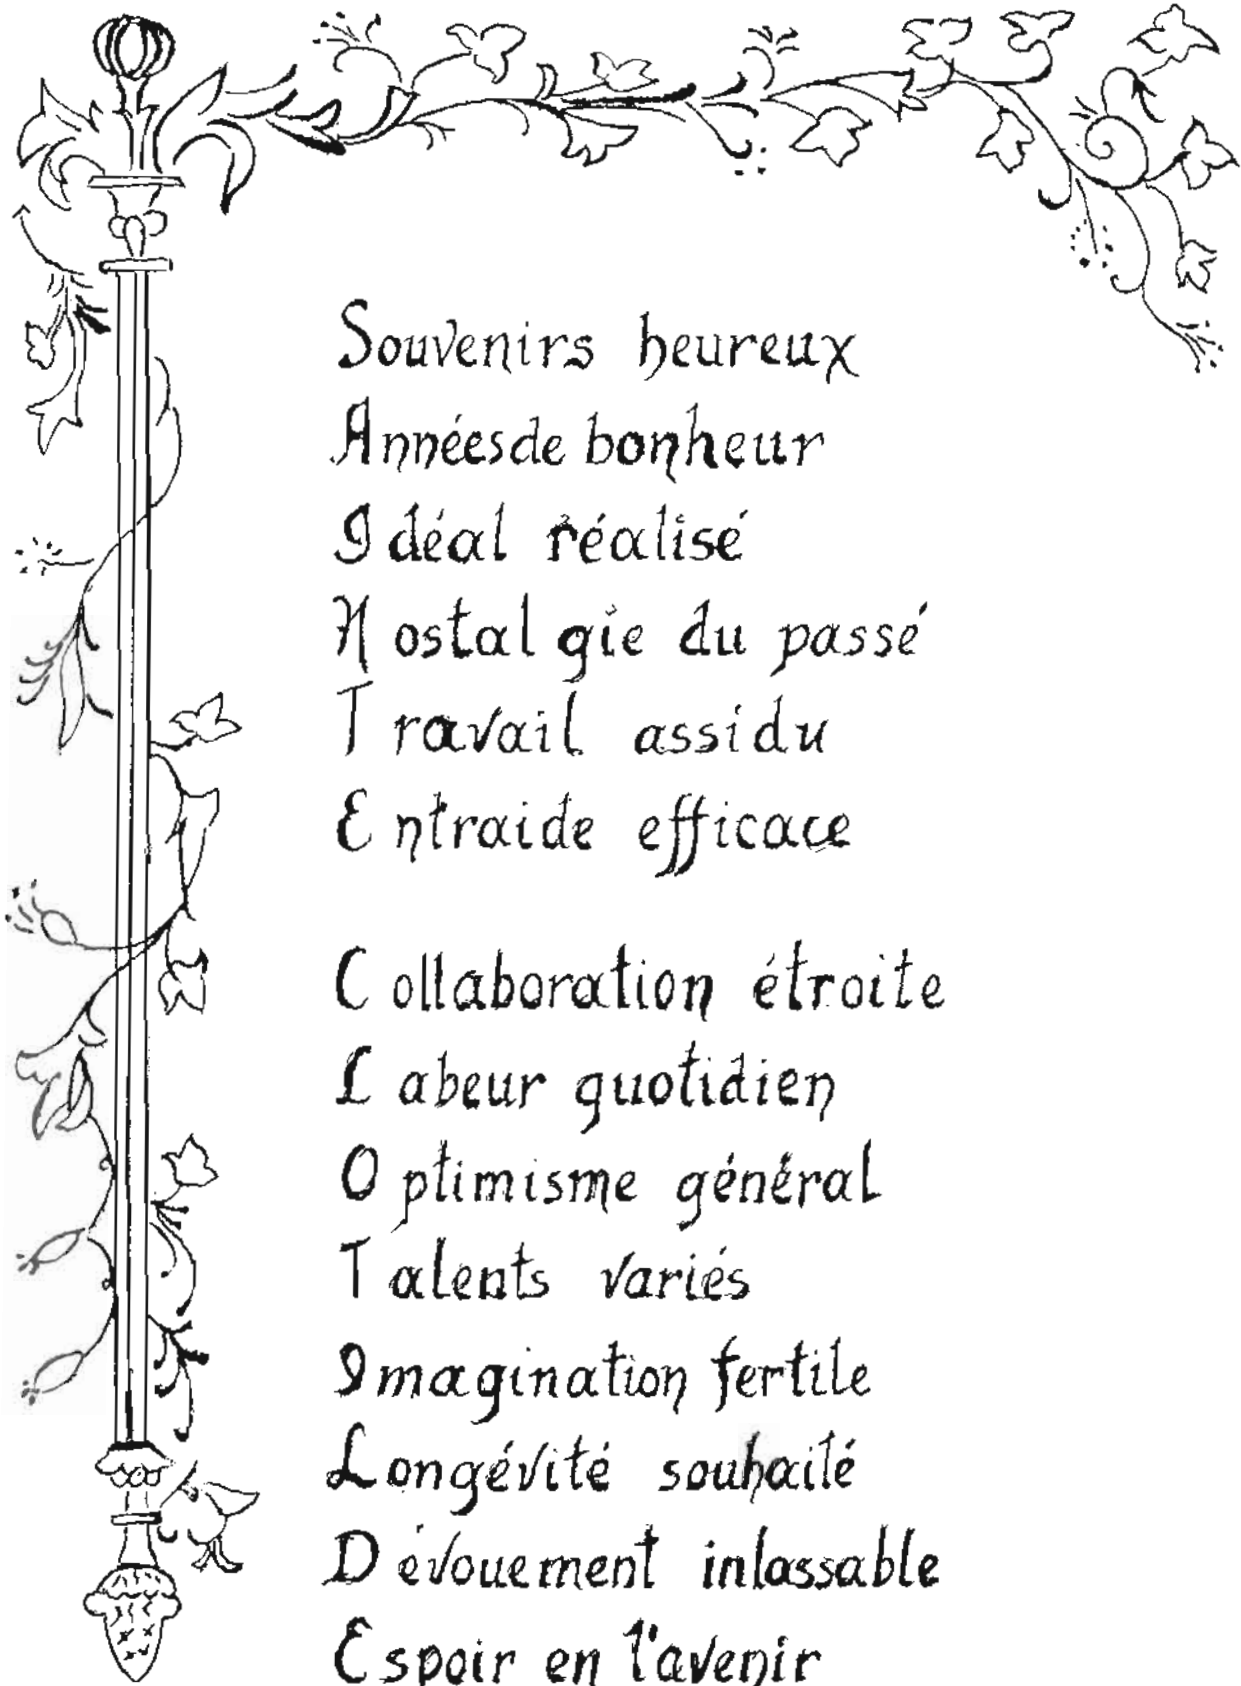 Souvenirs heureux
Années de bonheur
Idéal réalisé
Nostalgie du passé
Travail assidu
Entraide efficace
Collaboration étroite
Labeur quotidien
Optimisme général
Talents variés
Imagination fertile
Longévité souhaité
Dévouement inlassable
Espoir en l'avenir